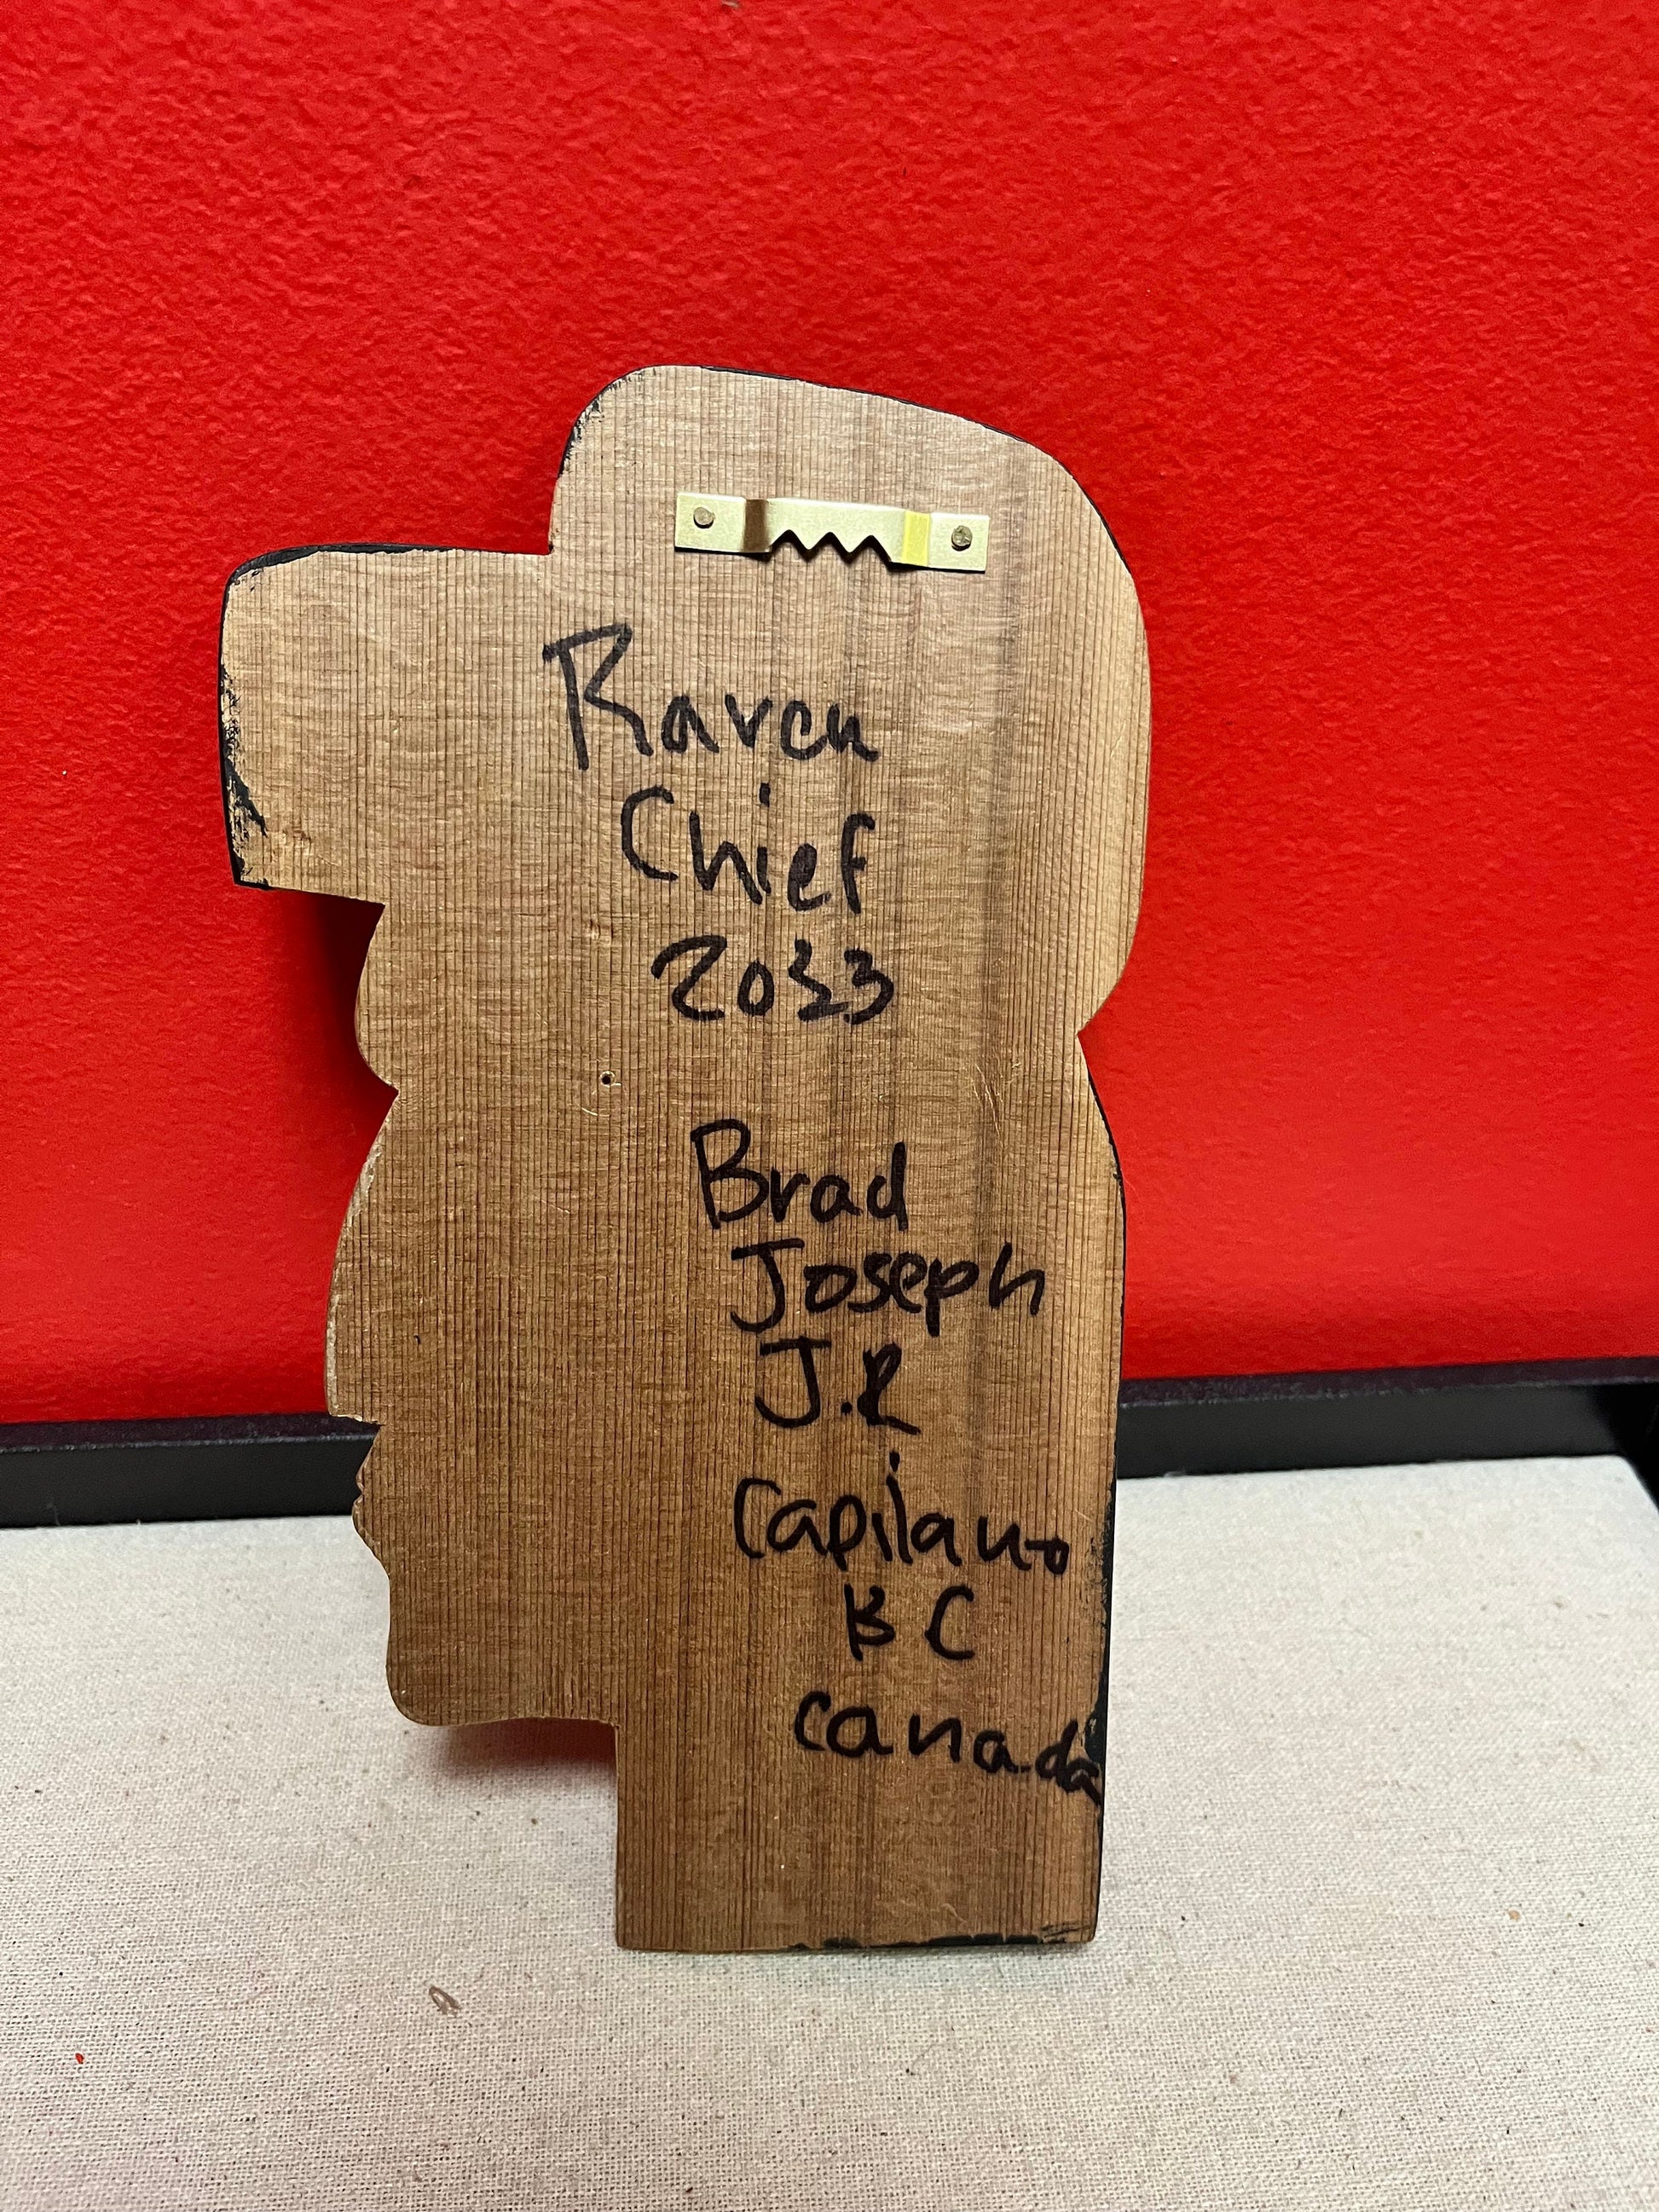 Raven
Chief
2023
Brad
Joseph
J.R
Capilano
BC
Canada